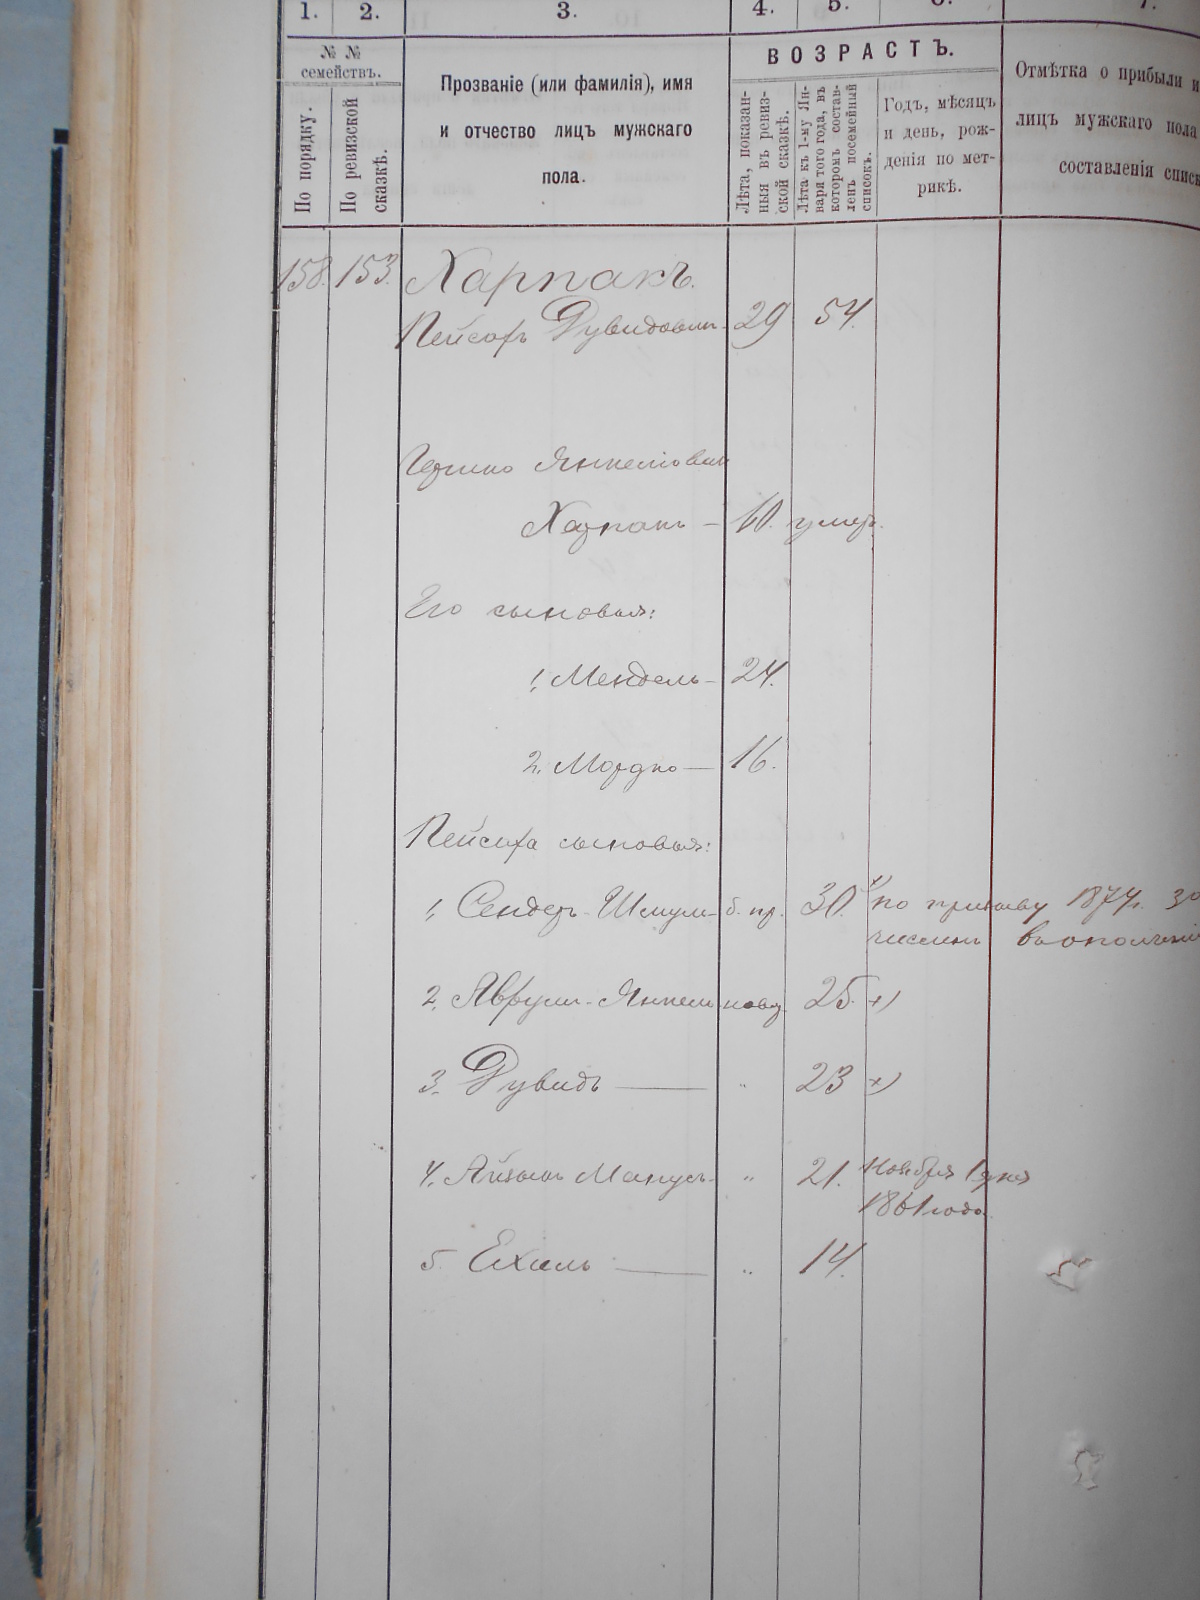 1. 2. 3. 4. 5. 6. 7.
№ №
семействъ.
По порядку.
По ревизской
сказкѣ.
Прозваніе (или фамилія), имя
и отчество лицъ мужскаго
пола.
ВОЗРАСТЪ.
Лѣта, показан-
ныя въ ревиз-
ской сказкѣ.
Лѣта къ 1-му Ян-
варя того года, въ
которомъ состав-
ленъ посемейный
списокъ.
Годъ, мѣсяцъ
и день, рож-
денія по мет-
рикѣ.
Отмѣтка о прибыли и
лицъ мужскаго пола
составленія списк
158. 153. Харпакъ.
Пейсахъ Дувидович 29 54.
Гершко Янкелювич
Харпакъ — 60. умер.
Его сыновья:
1. Мендель — 24.
2. Мордко — 16.
Пейсаха сыновья:
1, Сендеръ-Шмуль- б. пр. 30. по призыву 1874г. за
численъ въ ополчені
2, Аврумъ-Янкель 25 x)
3. Дувидъ — " 23 x)
4. Айзикъ Манусъ- " 21. Ноября 1 дня
1861 года.
5. Ехиль — " 14.